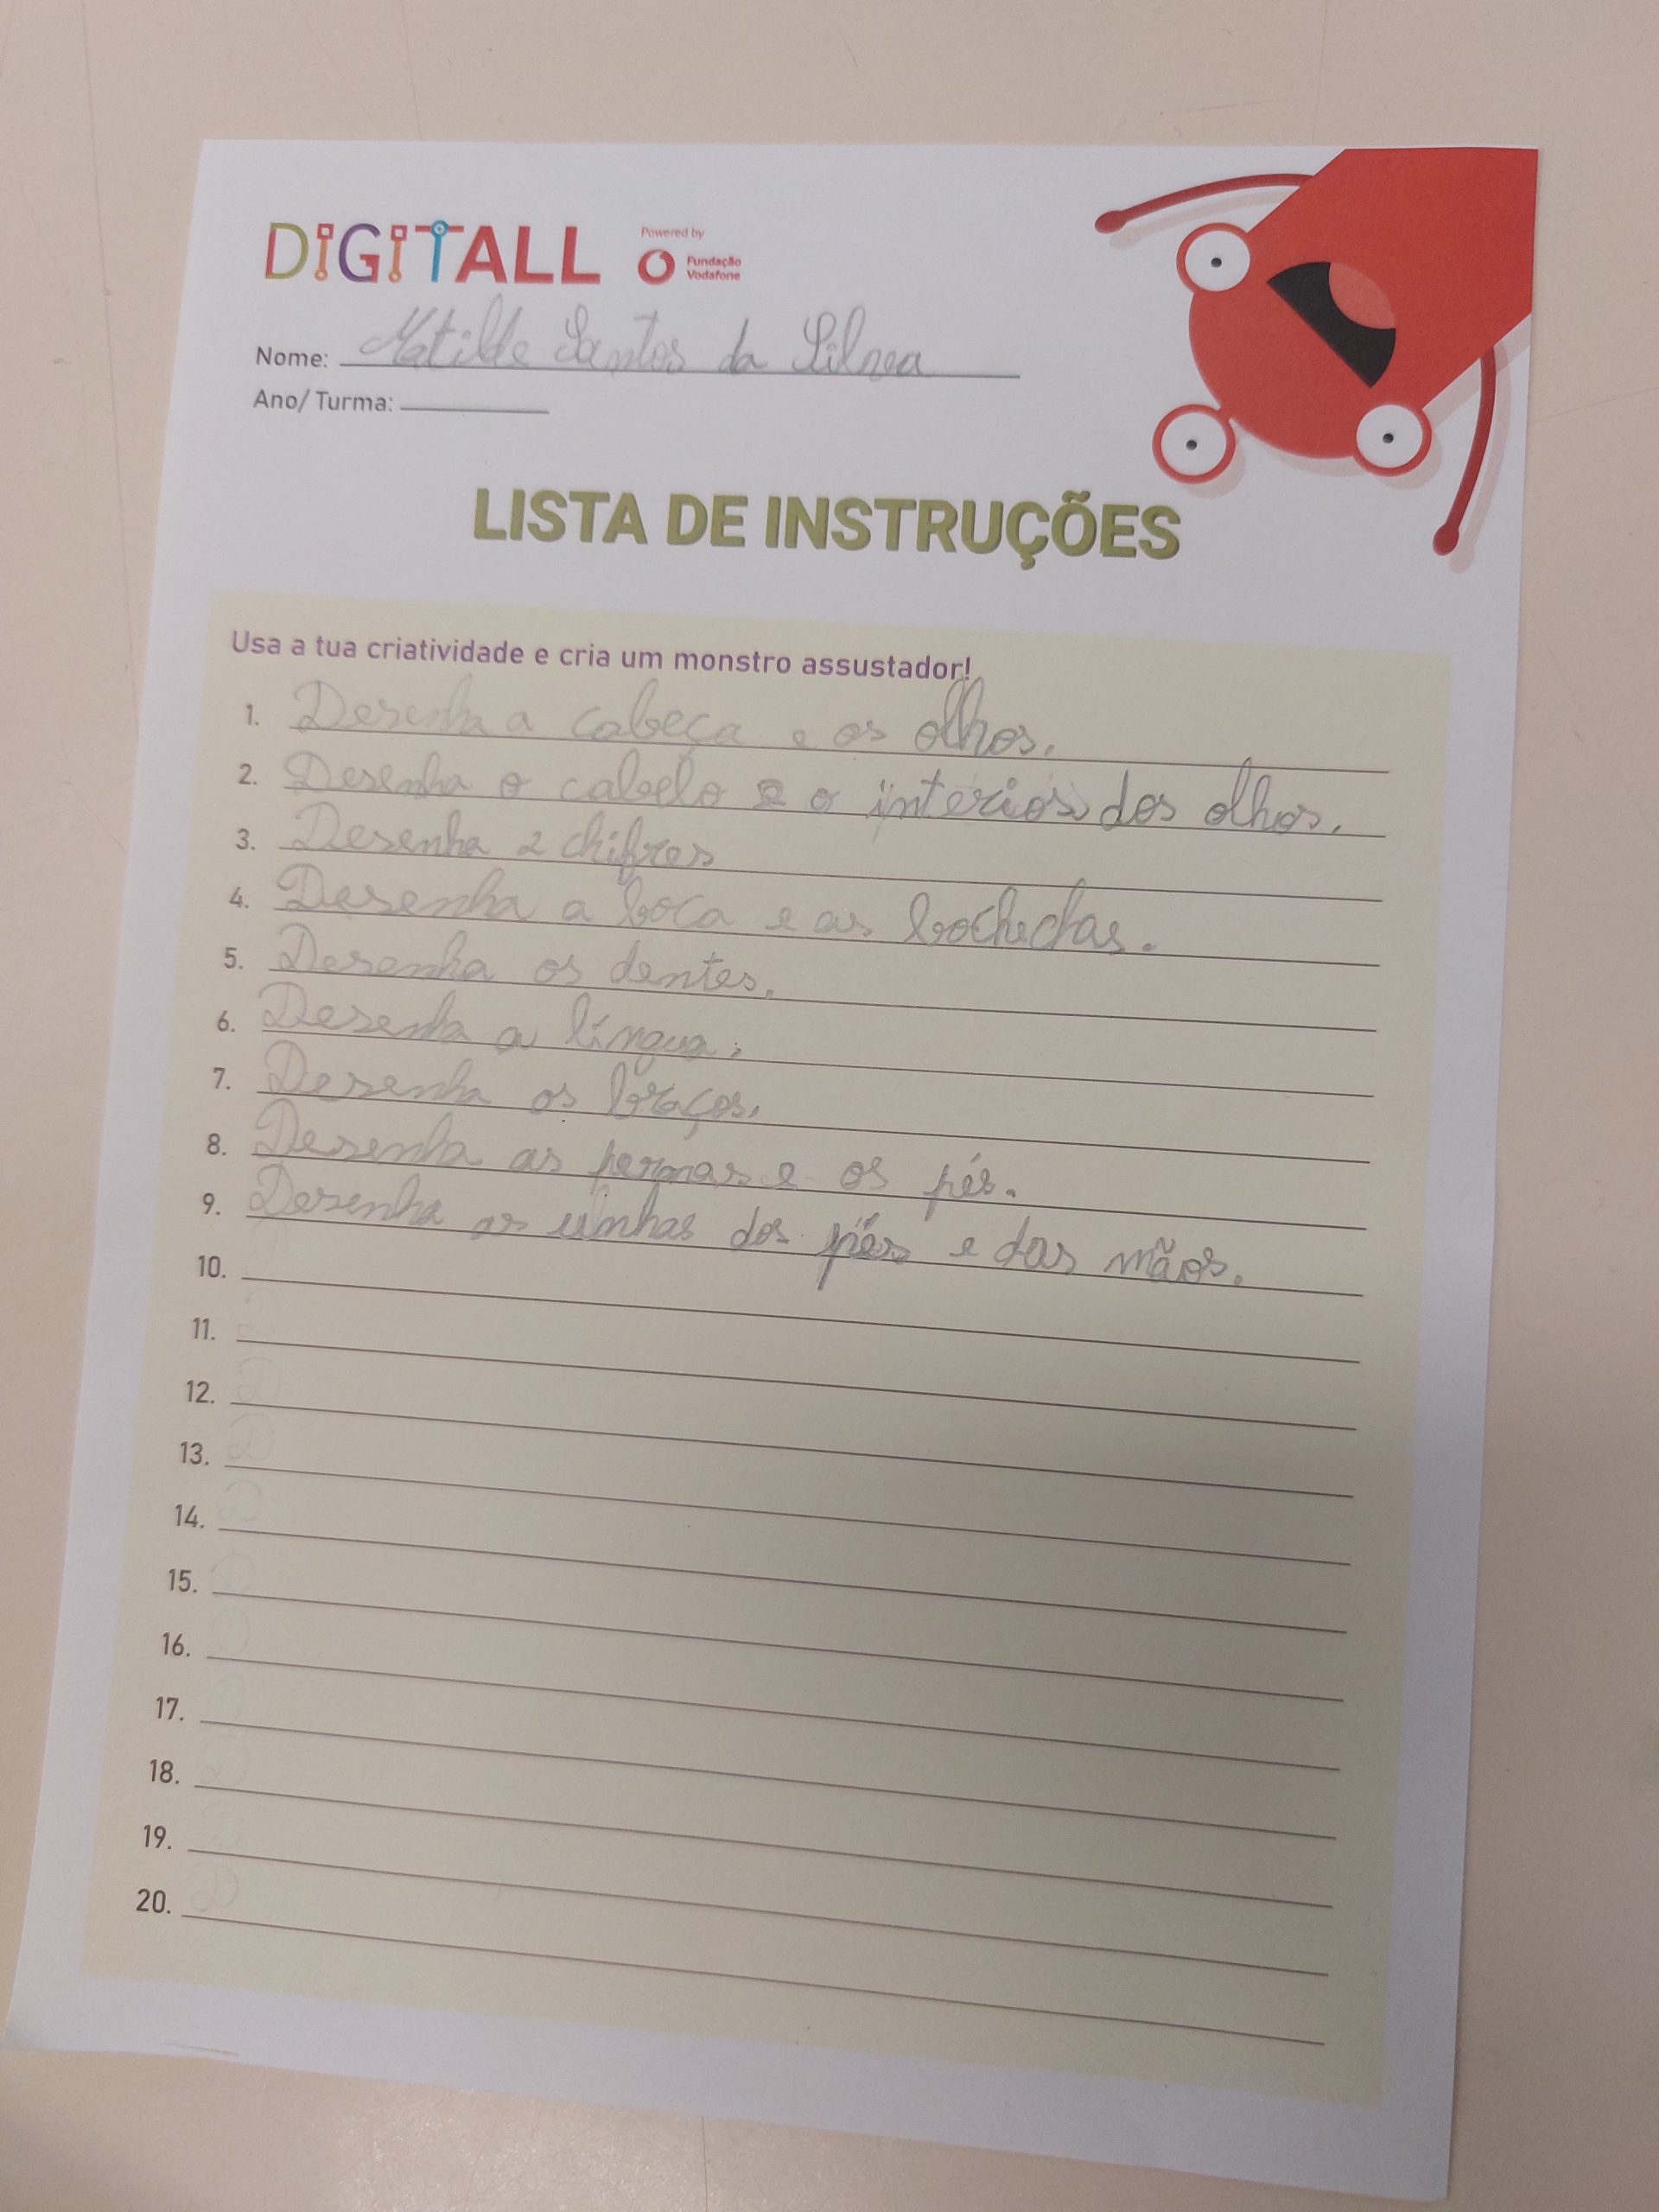 DIGITALL
Powered by
Fundação
Vodafone
Nome: Matilde Santos da Silva
Ano/ Turma:
LISTA DE INSTRUÇÕES
Usa a tua criatividade e cria um monstro assustador!
1. Desenha a cabeça e os olhos.
2. Desenha o cabelo e o interior dos olhos.
3. Desenha 2 chifres
4. Desenha a boca e as bochechas.
5. Desenha os dentes.
6. Desenha a língua.
7. Desenha os braços.
8. Desenha as pernas e os pés.
9. Desenha as unhas dos pés e das mãos.
10.
11.
12.
13.
14.
15.
16.
17.
18.
19.
20.